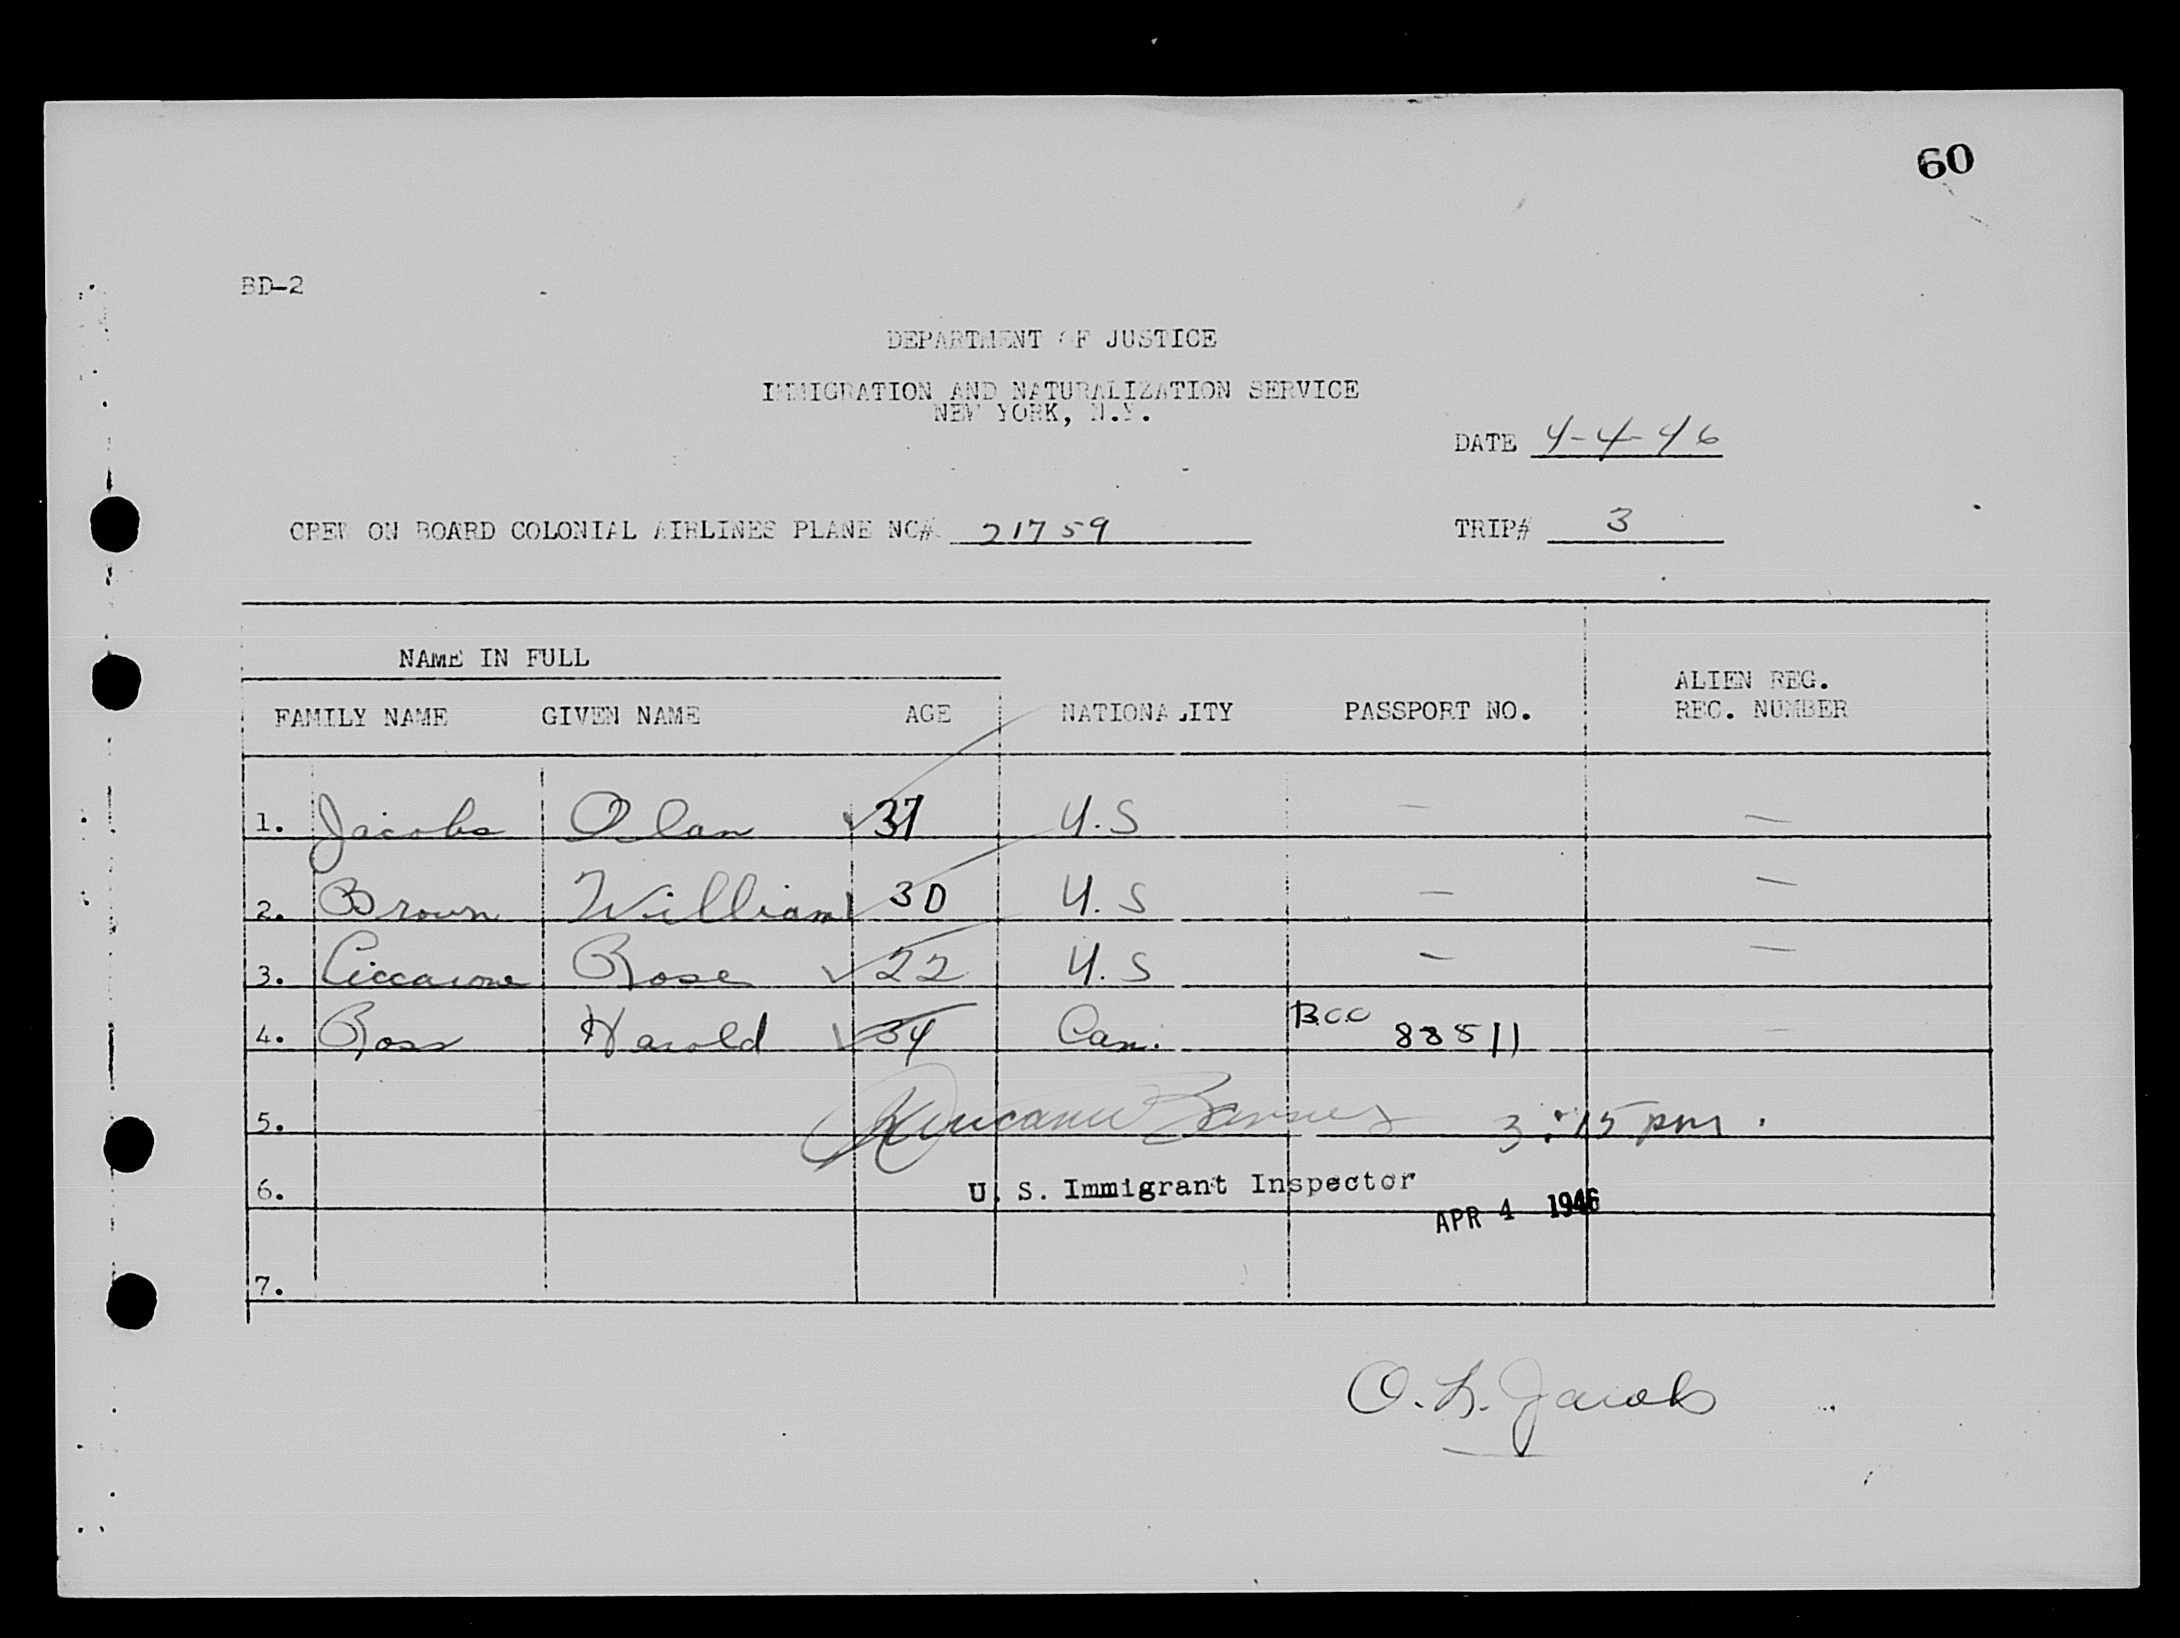 60
BD-2
DEPARTMENT OF JUSTICE
IMMIGRATION AND NATURALIZATION SERVICE
NEW YORK, N.Y.
DATE 4-4-46
CREW ON BOARD COLONIAL AIRLINES PLANE NC# 21759 TRIP# 3
NAME IN FULL
FAMILY NAME GIVEN NAME AGE NATIONALITY PASSPORT NO. ALIEN REG. REC. NUMBER
1. Jacobs Olan 37 U.S — —
2. Brown William 30 U.S — —
3. Ciccarone Rose 22 U.S — —
4. Ross Harold 34 Can. B.C.C 88511 —
5. 3:15 pm.
6. U. S. Immigrant Inspector
APR 4 1946
7.
O. L. Jacobs